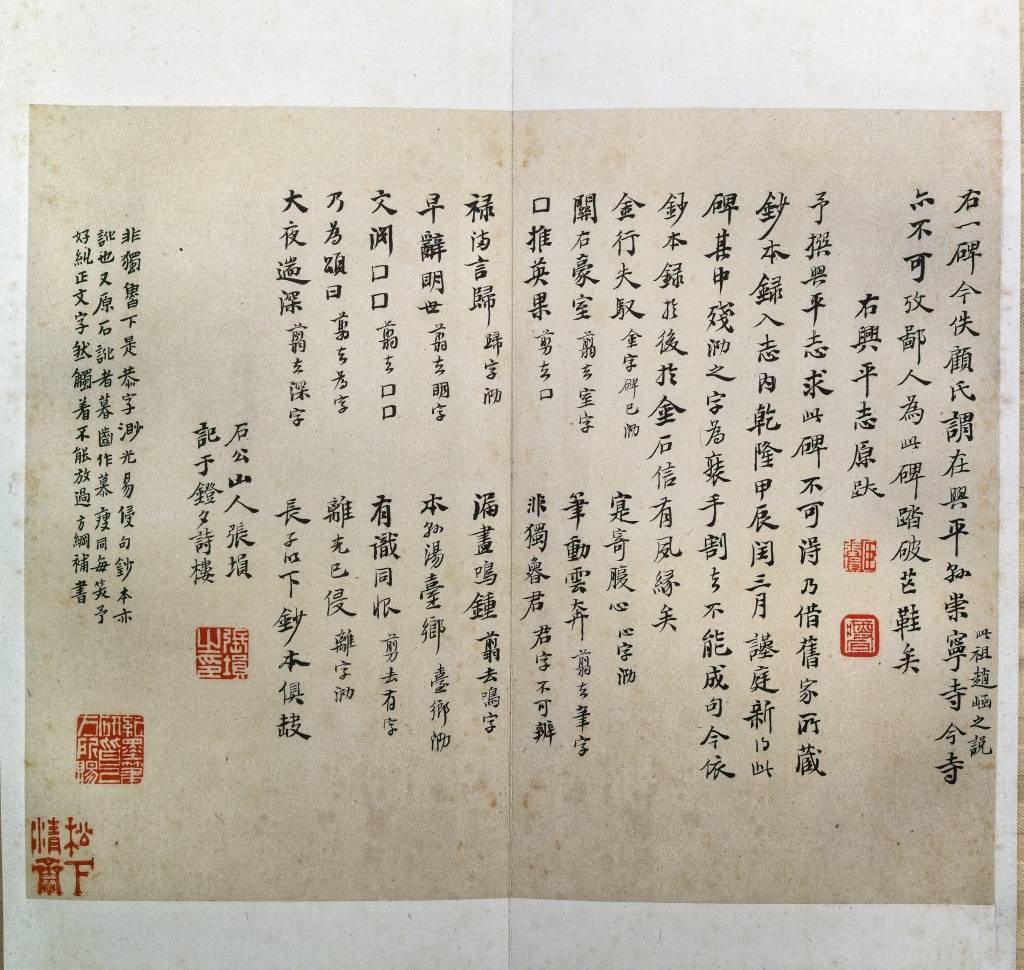 右一碑今佚顧氏謂在興平孫崇寧寺今寺
此祖趙崡之説
亦不可攷鄙人為此碑踏破芒鞋矣
右興平志原跋
予撰興平志求此碑不可得乃借舊家所藏
鈔本録入志内乾隆甲辰閏三月謹庭新得此
碑其中殘泐之字為裝手割去不能成句今依
鈔本録於後於金石信有夙緣矣
金行失馭 金字碑已泐 寔寄腹心 心字泐
關右豪室 翦去室字 筆動雲奔 翦去筆字
口推英果 剪去口 非獨魯君 君字不可辨
禄洎言歸 歸字泐 漏盡鳴鍾 翦去鳴字
早辭明世 翦去明字 本孫湯臺鄉 臺鄉泐
文淵口口 翦去口口 有識同恨 剪去有字
乃為頌曰 翦去為字 離光已侵 離字泐
大夜遄深 翦去深字 長子以下鈔本俱缺
石公山人張塤
記于鐙夕詩樓
非獨魯下是恭字渺光易侵句鈔本亦
訛也又原石訛者暮齒作慕瘦同每笑予
好糾正文字然觸着不能放過方綱補書
張塤之印
松下清齋